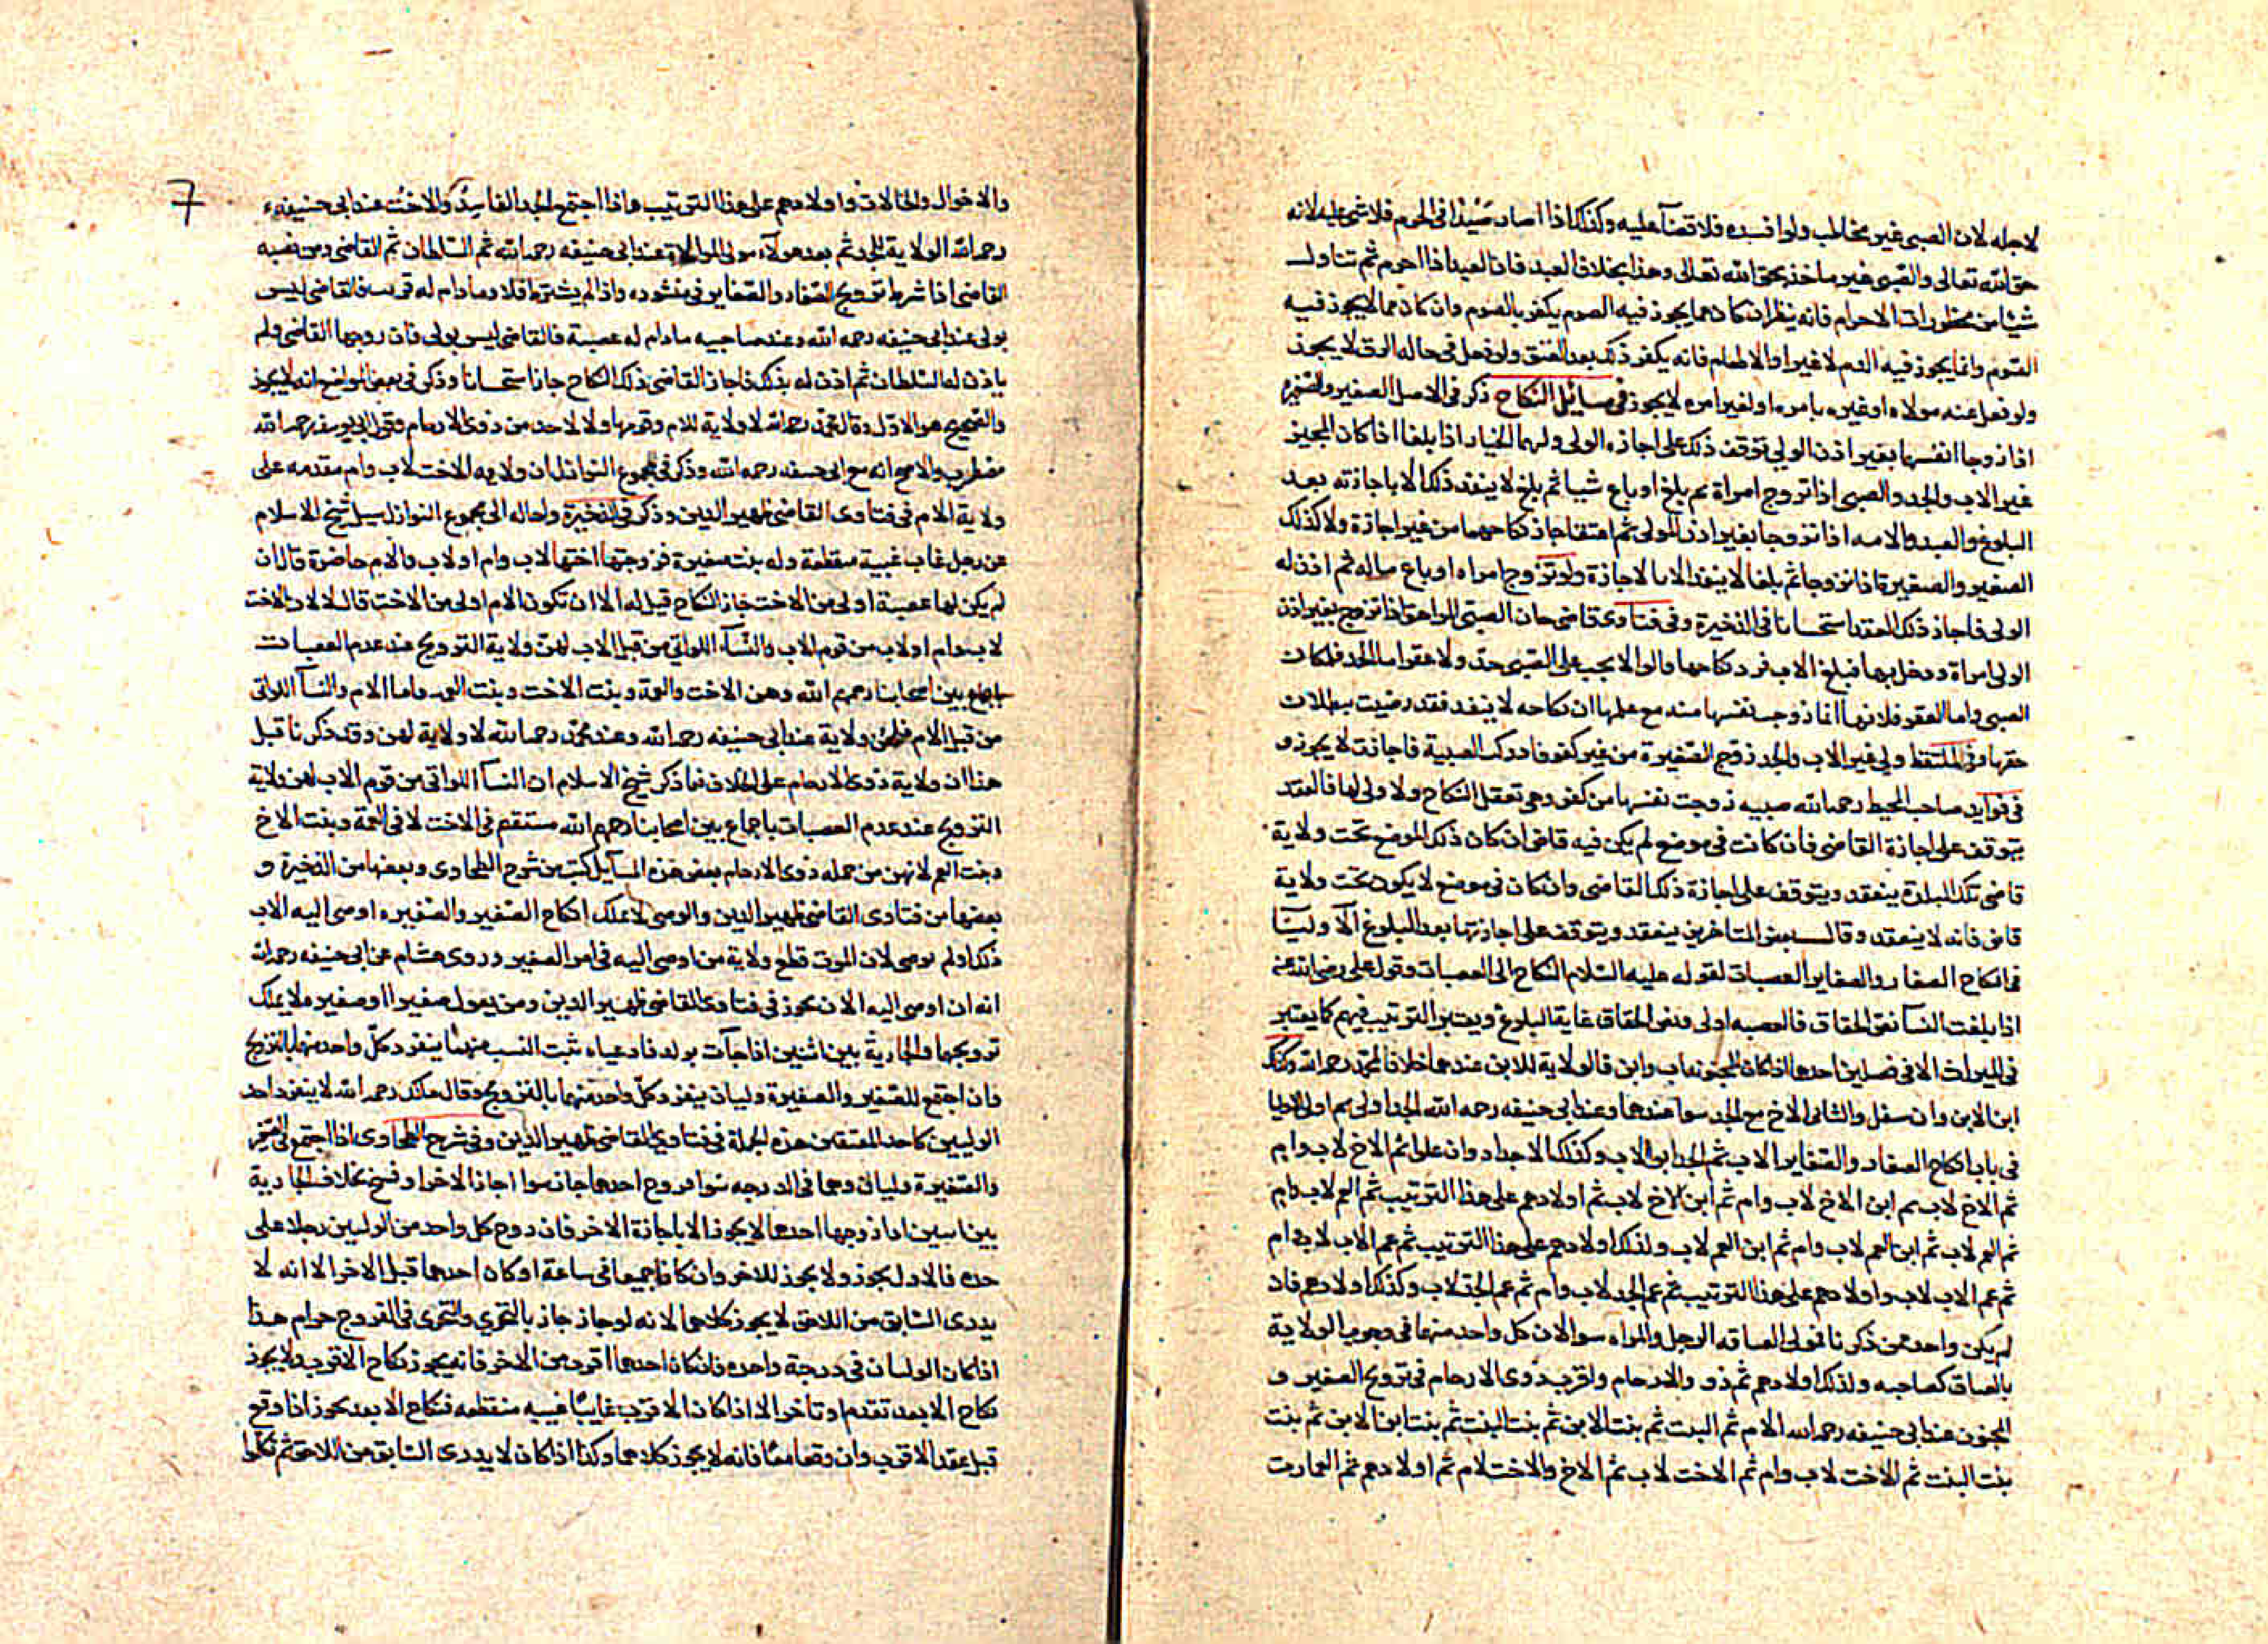 لاجله لان الصبى غير مخاطب ولو افسده فلا قضآ عليه وكذلك اذا اصاد صَيْدًا فى الحرم فلا شى عليه لانه
حق الله تعالى والصبى غير ماخذ بحق الله تعالى وهذا بخلاف العبد فان العبد اذا احرم ثم تناول
شيئا من محظورات الاحرام فانه ينظر ان كان مما يجوز فيه الصوم يكفر بالصوم وان كان مما لا يجوز فيه
الصوم وانما يجوز فيه الدم لا غير او الاطعام فانه يكفر ذلك بعد العتق ولو فعل فى حاله الرق لا يجوز
ولو فعل عنه مولاه او غيره بامره او لغير امره لا يجوز فى مسائل النكاح ذكر فى الاصل الصغير والصغيره
اذا زوجا انفسهما بغير اذن الولى توقف ذلك على اجازه الولى ولهما الخيار اذا بلغا اذا كان المجيز
غير الاب والجد والصبى اذا تزوج امراة ثم بلغ او باع شيا ثم بلغ لا ينفذ ذلك الا باجازته بعد
البلوغ والعبد والامه اذا تزوجا بغير اذن المولى ثم اعتقا جاز نكاحهما من غير اجازة ولا كذلك
الصغير والصغيرة اذا تزوجا ثم بلغا لا ينفذ الا بالاجازة ولو تزوج امراه او باع ماله ثم اذن له
الولى فاجاز ذلك العقد استحسانا فى الذخيرة وفى فتاوى قاضى خان الصبى المراهق اذا تزوج بغير اذن
الولى امراة ودخل بها فبلغ الاب فرد نكاحها قالوا لا يجب على الصبى حد ولا عقر اما الحد فلمكان
الصبى واما العقر فلانها انما زوجت نفسها منه مع علمها ان نكاحه لا ينفذ فقد رضيت ببطلان
حقها وفى الملتقط ولى غير الاب والجد زوج الصغيرة من غير كفو فادركت الصبية فاجازت لا يجوز و
فى فوايد صاحب المحيط رحمه الله صبيه زوجت نفسها من كفو وهى تعقل النكاح ولا ولى لها فالعقد
يتوقف على اجازة القاضى فان كانت فى موضع لم يكن فيه قاضى ان كان ذلك الموضع تحت ولاية
قاضى تلك البلدة ينعقد ويتوقف على اجازة ذلك القاضى وان كان فى موضع لا يكون تحت ولاية
قاض فانه لا ينعقد وقال بعض المتاخرين ينعقد ويتوقف على اجازتها بعد البلوغ الاوليآ
فى انكاح الصغار والصغاير العصبات لقوله عليه السلام النكاح الى العصبات وقول على رضى الله عنه
اذا بلغت النسآ نص الحقاق فالعصبه اولى ونص الحقاق غاية البلوغ ويعتبر الترتيب فيهم كما يعتبر
فى الميراث الا فى فصلين احدهما اذا كان للمجنونه اب وابن فالولاية للابن عندهما خلافا لمحمد رحمه الله وكذلك
ابن الابن وان سفل والثانى الاخ مع الجد سوا عندهما وعند ابى حنيفه رحمه الله الجد اولى ثم اولى الاوليا
فى باب انكاح الصغار والصغاير الاب ثم الجد ابو الاب وكذلك الاجداد وان على ثم الاخ لاب وام
ثم الاخ لاب ثم ابن الاخ لاب وام ثم ابن الاخ لاب ثم اولادهم على هذا الترتيب ثم العم لاب وام
ثم العم لاب ثم ابن العم لاب وام ثم ابن العم لاب وكذلك اولادهم على هذا الترتيب ثم عم الاب لاب وام
ثم عم الاب لاب واولادهم على هذا الترتيب ثم عم الجد لاب وام ثم عم الجد لاب وكذلك اولادهم فان
لم يكن واحد ممن ذكرنا فمولى العتاقه الرجل والمراه سوا لان كل واحد منهما فى وجوب الولاية
بالعتاق كصاحبه وكذلك اولادهم ثم ذو والارحام واقرب ذوى الارحام فى تزويج الصغير و
المجنون عند ابى حنيفه رحمه الله الام ثم البنت ثم بنت الابن ثم بنت البنت ثم بنت ابن الابن ثم بنت
بنت البنت ثم الاخت لاب وام ثم الاخت لاب ثم الاخ والاخت لام ثم اولادهم ثم العمات
7
والاخوال والخالات واولادهم على هذا الترتيب واذا اجتمع الجد الفاسد والاخت عند ابى حنيفه
رحمه الله الولاية للجد ثم بعد هولآء مولى الموالاة عند ابى حنيفه رحمه الله ثم السلطان ثم القاضى ومن نصبه
القاضى اذا شرط تزويج الصغار والصغاير فى منشوره واذا لم يشترط فلا وما دام له قريب فالقاضى ليس
بولى عند ابى حنيفه رحمه الله وعند صاحبيه مادام له عصبة فالقاضى ليس بولى فان زوجها القاضى ولم
ياذن له السلطان ثم اذن له بذلك فاجاز القاضى ذلك النكاح جاز استحسانا وذكر فى بعض المواضع انه لا يجوز
والصحيح هو الاول وقال محمد رحمه الله لا ولاية للام وقومها ولا لاحد من ذوى الارحام وقول ابى يوسف رحمه الله
مضطرب والاصح انه مع ابى حنيفه رحمه الله وذكر فى مجموع النوازل ان ولايه الاخت لاب وام مقدمه على
ولاية الام فى فتاوى القاضى ظهير الدين وذكر فى الذخيرة واحاله الى مجموع النوازل سيل شيخ الاسلام
عن رجل غاب غيبة منقطعة وله بنت صغيرة فزوجتها اختها لاب وام او لاب والام حاضرة قال ان
لم يكن لها عصبة اولى من الاخت جاز النكاح قيل له الا ان تكون الام اولى من الاخت قال لا لان الاخت
لاب وام او لاب من قوم الاب والنسآء اللواتى من قبل الاب لهن ولاية التزويج عند عدم العصبات
باجماع بين اصحابنا رحمهم الله وهن الاخت والعمة وبنت الاخت وبنت العم واما الام والنسآ اللواتى
من قبل الام فلهن ولاية عند ابى حنيفه رحمه الله وعند محمد رحمه الله لا ولاية لهن وقد ذكرنا قبل
هذا ان ولاية ذوى الارحام على الخلاف فما ذكر شيخ الاسلام ان النسآ اللواتى من قوم الاب لهن ولاية
التزويج عند عدم العصبات باجماع بين اصحابنا رحمهم الله مستقيم فى الاخت لا فى العمة وبنت الاخ
وبنت العم لانهن من جمله ذوى الارحام بعض هذه المسآيل كتبت من شرح الطحاوى وبعضها من الذخيرة و
بعضها من فتاوى القاضى ظهير الدين والوصى لا يملك انكاح الصغير والصغيره اوصى اليه الاب
ذلك او لم يوص لان الموت قطع ولاية من اوصى اليه فى امر الصغير وروى هشام عن ابى حنيفه رحمه الله
انه ان اوصى اليه الاب يجوز فى فتاوى القاضى ظهير الدين ومن يعول صغيرا او صغيره لا يملك
تزويجها والجارية بين اثنين اذا جآت بولد فادعياه ثبت النسب منهما ينفرد كل واحد منهما بالتزويج
فان اجتمع للصغير والصغيرة وليان ينفرد كل واحد منهما بالتزويج وقال مالك رحمه الله لا ينفرد احد
الوليين كاحد المعتقين هذه الجملة فى فتاوى القاضى ظهير الدين وفى شرح الطحاوى اذا اجتمع للصغير
والصغيرة وليان وهما فى الدرجه سوا فزوج احدهما جاز سوا اجاز الاخر او فسخ بخلاف الجارية
بين اثنين اذا زوجها احدهما لا يجوز الا باجازة الاخر فان زوج كل واحد من الوليين رجلا على
حده فالاول يجوز ولا يجوز للاخر وان كانا جميعا فى ساعة او كان احدهما قبل الاخر الا انه لا
يدرى السابق من اللاحق لا يجوز كلاهما لانه لو جاز جاز بالتحرى والتحرى فى الفروج حرام هذا
اذا كان الوليان فى درجة واحده فان كان احدهما اقرب من الاخر فانه يجوز نكاح الاقرب ولا يجوز
نكاح الابعد تقدم او تاخر الا اذا كان الاقرب غايبا غيبه منقطعه فنكاح الابعد يجوز اذا وقع
قبل عقد الاقرب وان وقعا معًا فانه لا يجوز كلاهما وكذا اذا كان لا يدرى السابق من اللاحق ثم تكلموا